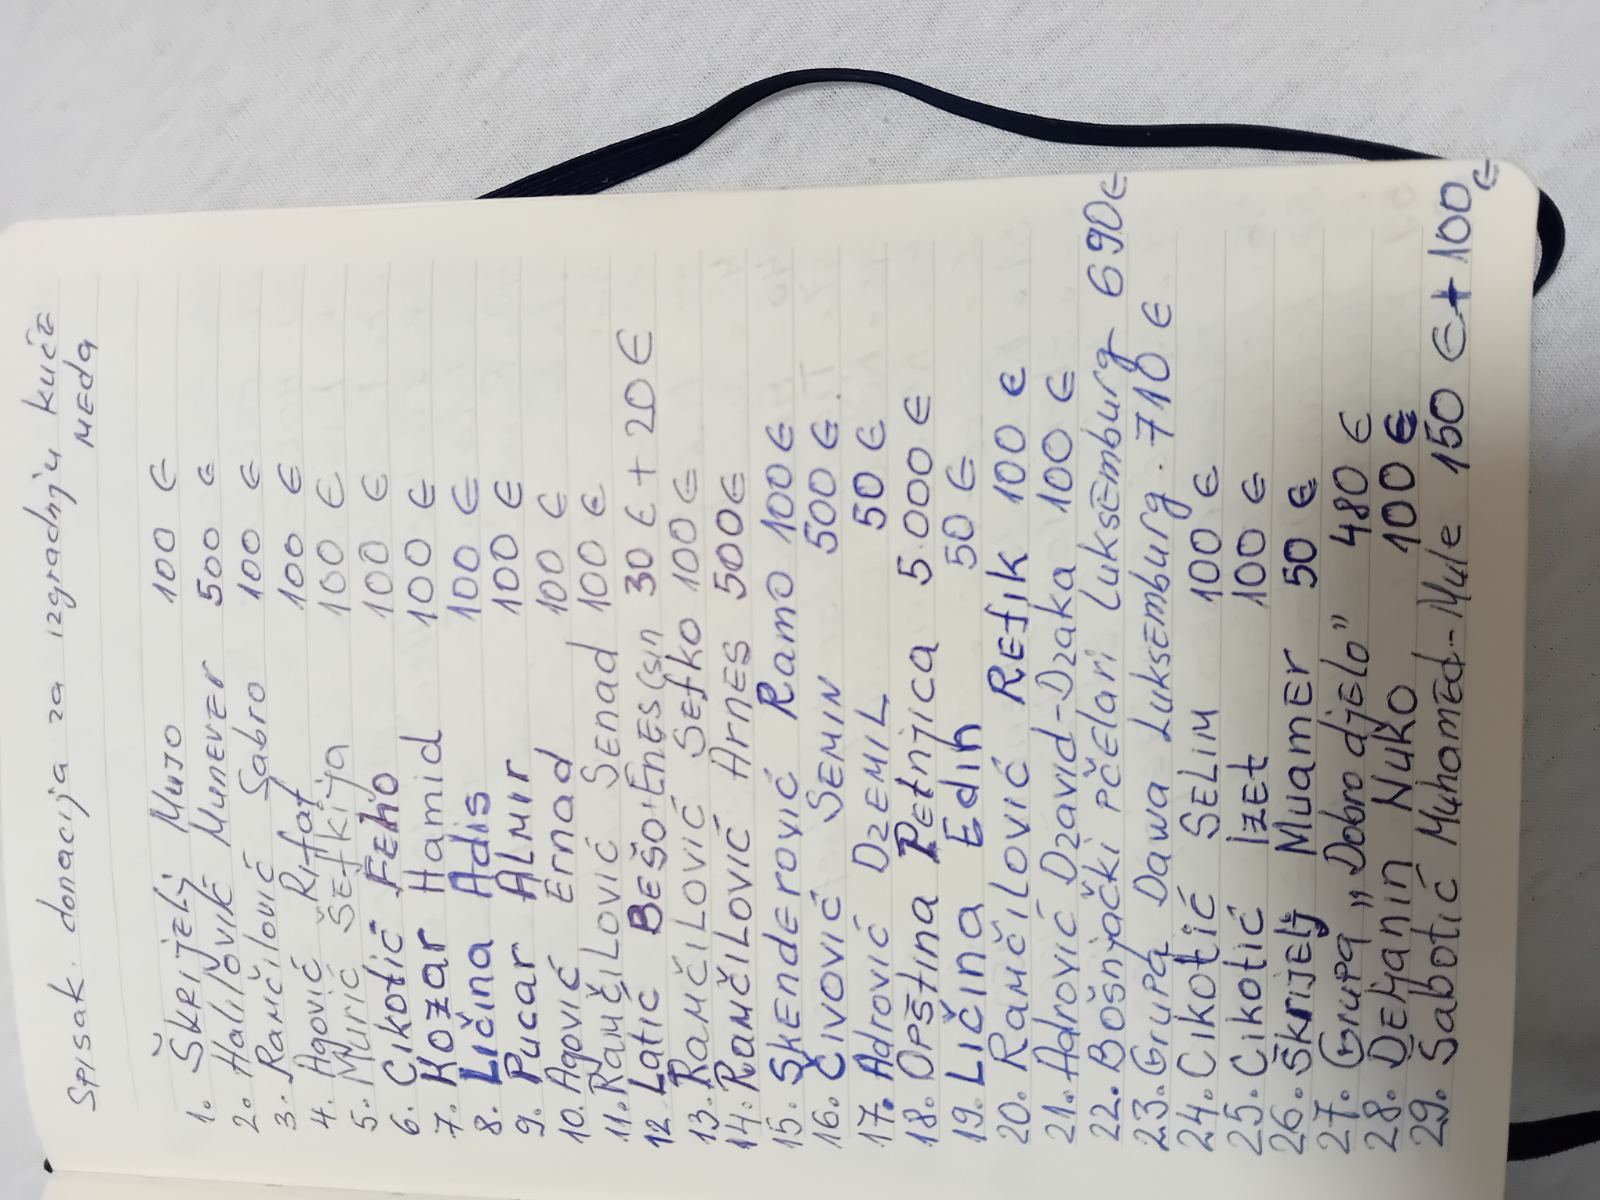 Spisak. donacija za izgradnju kuće
meda
1. Škrijelj Mujo 100 €
2. Halilovik Munever 500 €
3. Ramčilović Sabro 100 €
4. Agović Rifat 100 €
5. Murić Šefkija 100 €
6. Cikotić Feho 100 €
7. Kozar Hamid 100 €
8. Ličina Adis 100 €
9. Pucar Almir 100 €
10. Agović Ernad 100 €
11. Ramčilović Senad 100 €
12 Latić Bešo+Enes (sin 30 € + 20 €
13. Ramčilović Sefko 100 €
14. Ramčilović Arnes 500 €
15. Skenderović Ramo 100 €
16. Čivović Semin 500 €
17. Adrović Dzemil 50 €
18. Opština Petnjica 5.000 €
19. Ličina Edin 50 €
20. Ramčilović Refik 100 €
21. Adrović Dzavid-Dzaka 100 €
22. Bošnjački pčelari Luksemburg 690 €
23. Grupa Dawa Luksemburg. 710 €
24. Cikotić Selim 100 €
25. Cikotić Izet 100 €
26. Škrijelj Muamer 50 €
27. Grupa „Dobro djelo" 480 €
28. Dehanin Nuko 100 €
29. Sabotić Muhamed-Mule 150 € + 100 €